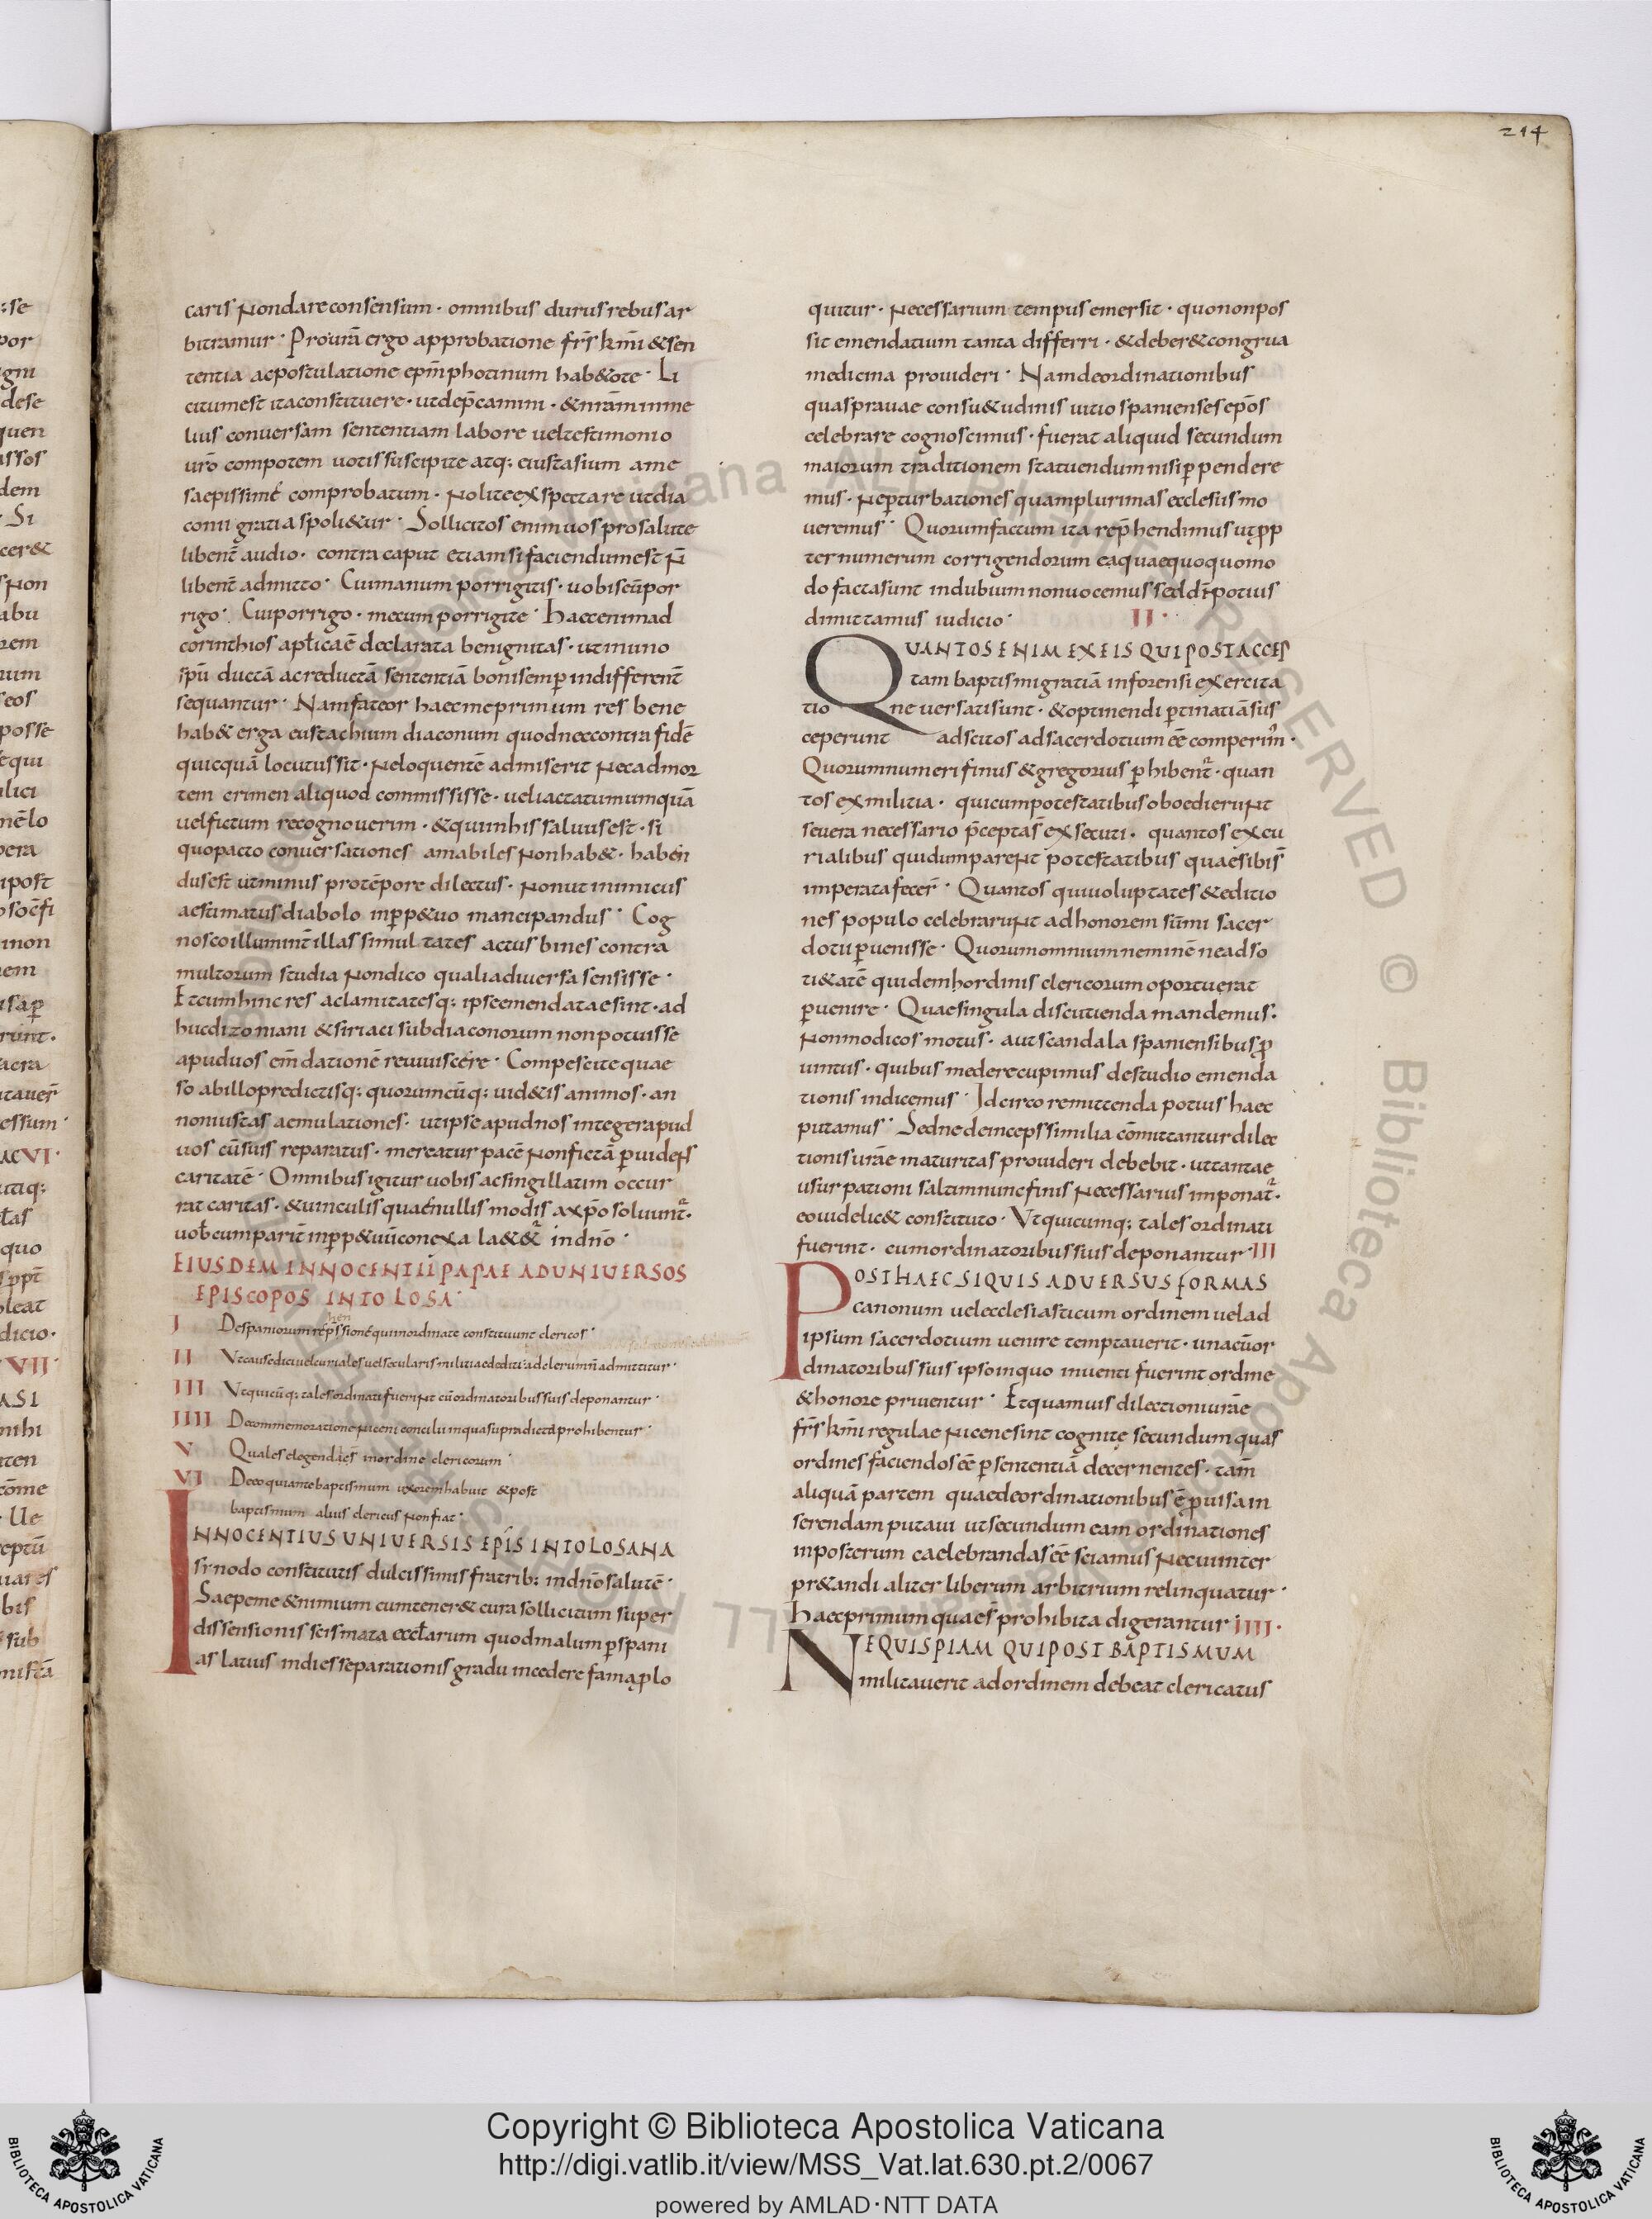 214
caris Non dare consensum · omnibus durus rebus ar
bitramur · Pro urā ergo approbatione frīs km̄i & sen
tentia ac postulatione ep̄m photinum hab&ote · Li
citum est ita constituere · ut dep̄camini · & nr̄am in me
lius conuersam sententiam labore uel testimonio
ur̄o compotem uotis suscipite atq: eiustasium a me
saepissimé comprobatum · Nolite exspectare ut dia
conii gratia spoli&ur · Sollicitos enim uos pro salute
libent̄ audio · contra caput etiam si faciendum est N̄
libent̄ admitto · Cui manum porrigitis · uobiscū por
rigo · Cui porrigo · mecum porrigite · haec enim ad
corinthios apt̄licaē declarata benignitas · ut in uno
sp̄u ductā ac reductā sententiā boni semꝑ indifferent̄
sequantur · Nam fateor haec me primum res bene
hab& erga eustachium diaconum quod nec contra fidē
quicquā locutus sit · Ne loquentē admiserit Nec ad mor
tem crimen aliquod commississe · uel iactatum umquā
uel fictum recognouerim · & qui in his saluus est · si
quo pacto conuersationes amabiles Non hab& · haben
dus est ut minus pro tēpore dilectus · Non ut inimicus
aestimatus diabolo inꝑp&uo mancipandus · Cog
nosco illumint̄ illas simultates actus bines contra
multorum studia Non dico qualia diuersa sensisse ·
Et cum hinc res aclamitatesq: ipse emendatae sint · ad
huc dizomani & siriaci subdiaconorum non potuisse
apud uos em̄dationē reuiuiscere · Compescite quae
so ab illo predictisq: quorumcūq: uid&is animos · an
non iustas aemulationes · ut ipse apud nos integer apud
uos cū suis reparatus · mereatur pacē Non fictā ꝑuideNs
caritatē · Omnibus igitur uobis ac singillatim occur
rat caritas · & uinculis quae nullis modis a xp̄o soluunt̄ ·
uob̄cum parit̄ inꝑp&uū conexa la&&ur in dn̄o ·
EIUSDEM INNOCENTII PAPAE AD UNIUERSOS
EPISCOPOS IN TOLOSA ·
I Despaniorum rep̄hensionē qui inordinate constituunt clericos ·
II Vt causedici uel curiales uel secularis militiae dediti · ad clerum n̄ admittitur ·
III Vt quicūq: tales ordinati fueriNt cū ordinatoribus suis deponantur ·
IIII De commemoratione Niceni concilii in qua supradicta prohibentur ·
V Quales elegendi es in ordine clericorum ·
VI De eo qui ante baptismum uxorem habuit & post
baptismum alius clericus Non fiat ·
INNOCENTIUS UNIUERSIS EPĪS IN TOLOSANA
sinodo constitutis dulcissimis fratrib: in dn̄o salutē ·
Saepe me & nimium cum tener& cura sollicitum super
dissensionis scismata eccl̄arum quod malum ꝑ spani
as latius in dies separationis gradu incedere fama ꝓlo
quitur · Necessarium tempus emersit · quo non pos
sit emendatium tanta differri · & deber& congrua
medicina prouideri · Nam de ordinationibus
quas prauae consu&udinis uitio spanienses ep̄os
celebrare cognoscimus · fuerat aliquid secundum
maiorum traditionem statuendum nisi ꝑpendere
mus · Ne ꝑturbationes quam plurimas ecclesiis mo
ueremus · Quorum factum ita rep̄hendimus ut ꝓp
ter numerum corrigendorum ea quae quoquomo
do facta sunt in dubium non uocemus sed dī potius
dimittamus iudicio · II ·
QUANTOS ENIM EX EIS QUI POST ACCEP
tam baptismi gratiā in forensi exercita
tione uersati sunt · & optinendi ꝑtinatiā sus
ceperunt adscitos ad sacerdotum eē comperim̄ ·
Quorum numeri finus & gregorius ꝑhibent̄ · quan
tos ex militia · qui cum potestatibus oboedieruNt
seuera necessario p̄cepta s̄ exsecuti · quantos ex cu
rialibus qui dum pareNt potestatibus quae sibi s̄
imperata fecer̄ · Quantos qui uoluptates & editio
nes populo celebraruNt ad honorem sūmi sacer
dotii ꝑuenisse · Quorum omnium neminē ne ad so
ci&atē quidem hordinis clericorum oportuerat
ꝑuenire · Quae singula discutienda mandemus :
Non modicos motus · aut scandala spaniensibus ꝓ
uintiis · quibus medere cupimus de studio emenda
tionis indicemus · Idcirco remittenda potius haec
putamus · Sed ne deinceps similia cōmittantur dilec
tionis ur̄ae maturitas prouideri debebit · ut tantae
usurpationi saltim nunc finis Necessarius imponat̄ ·
eo uidelic& constituto · Vt quicumq: tales ordinati
fuerint · cum ordinatoribus suis deponantur · III
POST HAEC SI QUIS ADUERSUS FORMAS
canonum uel ecclesiasticum ordinem uel ad
ipsum sacerdotium uenire temptauerit · una cū or
dinatoribus suis ipso in quo inuenti fuerint ordine
& honore priuentur · Et quamuis dilectioni ur̄ae
frīs km̄i regulae Nicene sint cognitę secundum quas
ordines faciendos eē ꝑ sententiā decernentes · tam̄
aliquā partem quae de ordinationibus ē ꝓuisa in
serendam putaui ut secundum eam ordinationes
in posterum caelebrandas eē sciamus Nec ui inter
pr&andi aliter liberum arbitrium relinquatur ·
haec primum quae s̄ prohibita digerantur IIII ·
NE QUISPIAM QUI POST BAPTISMUM
militauerit ad ordinem debeat clericatus
Copyright © Biblioteca Apostolica Vaticana
http://digi.vatlib.it/view/MSS_Vat.lat.630.pt.2/0067
powered by AMLAD·NTT DATA
BIBLIOTECA APOSTOLICA VATICANA
BIBLIOTECA APOSTOLICA VATICANA